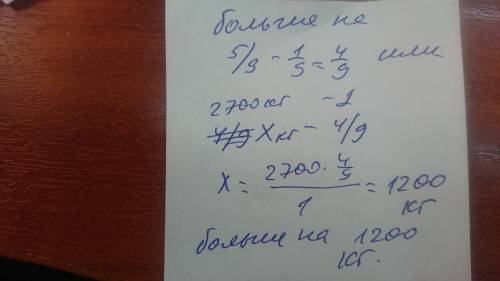 больше на
5/9 - 1/9 = 4/9 или
2700 кг - 1
4/9 X кг - 4/9
X = 2700 · 4/9 / 1 = 1200 кг
больше на 1200 кг.